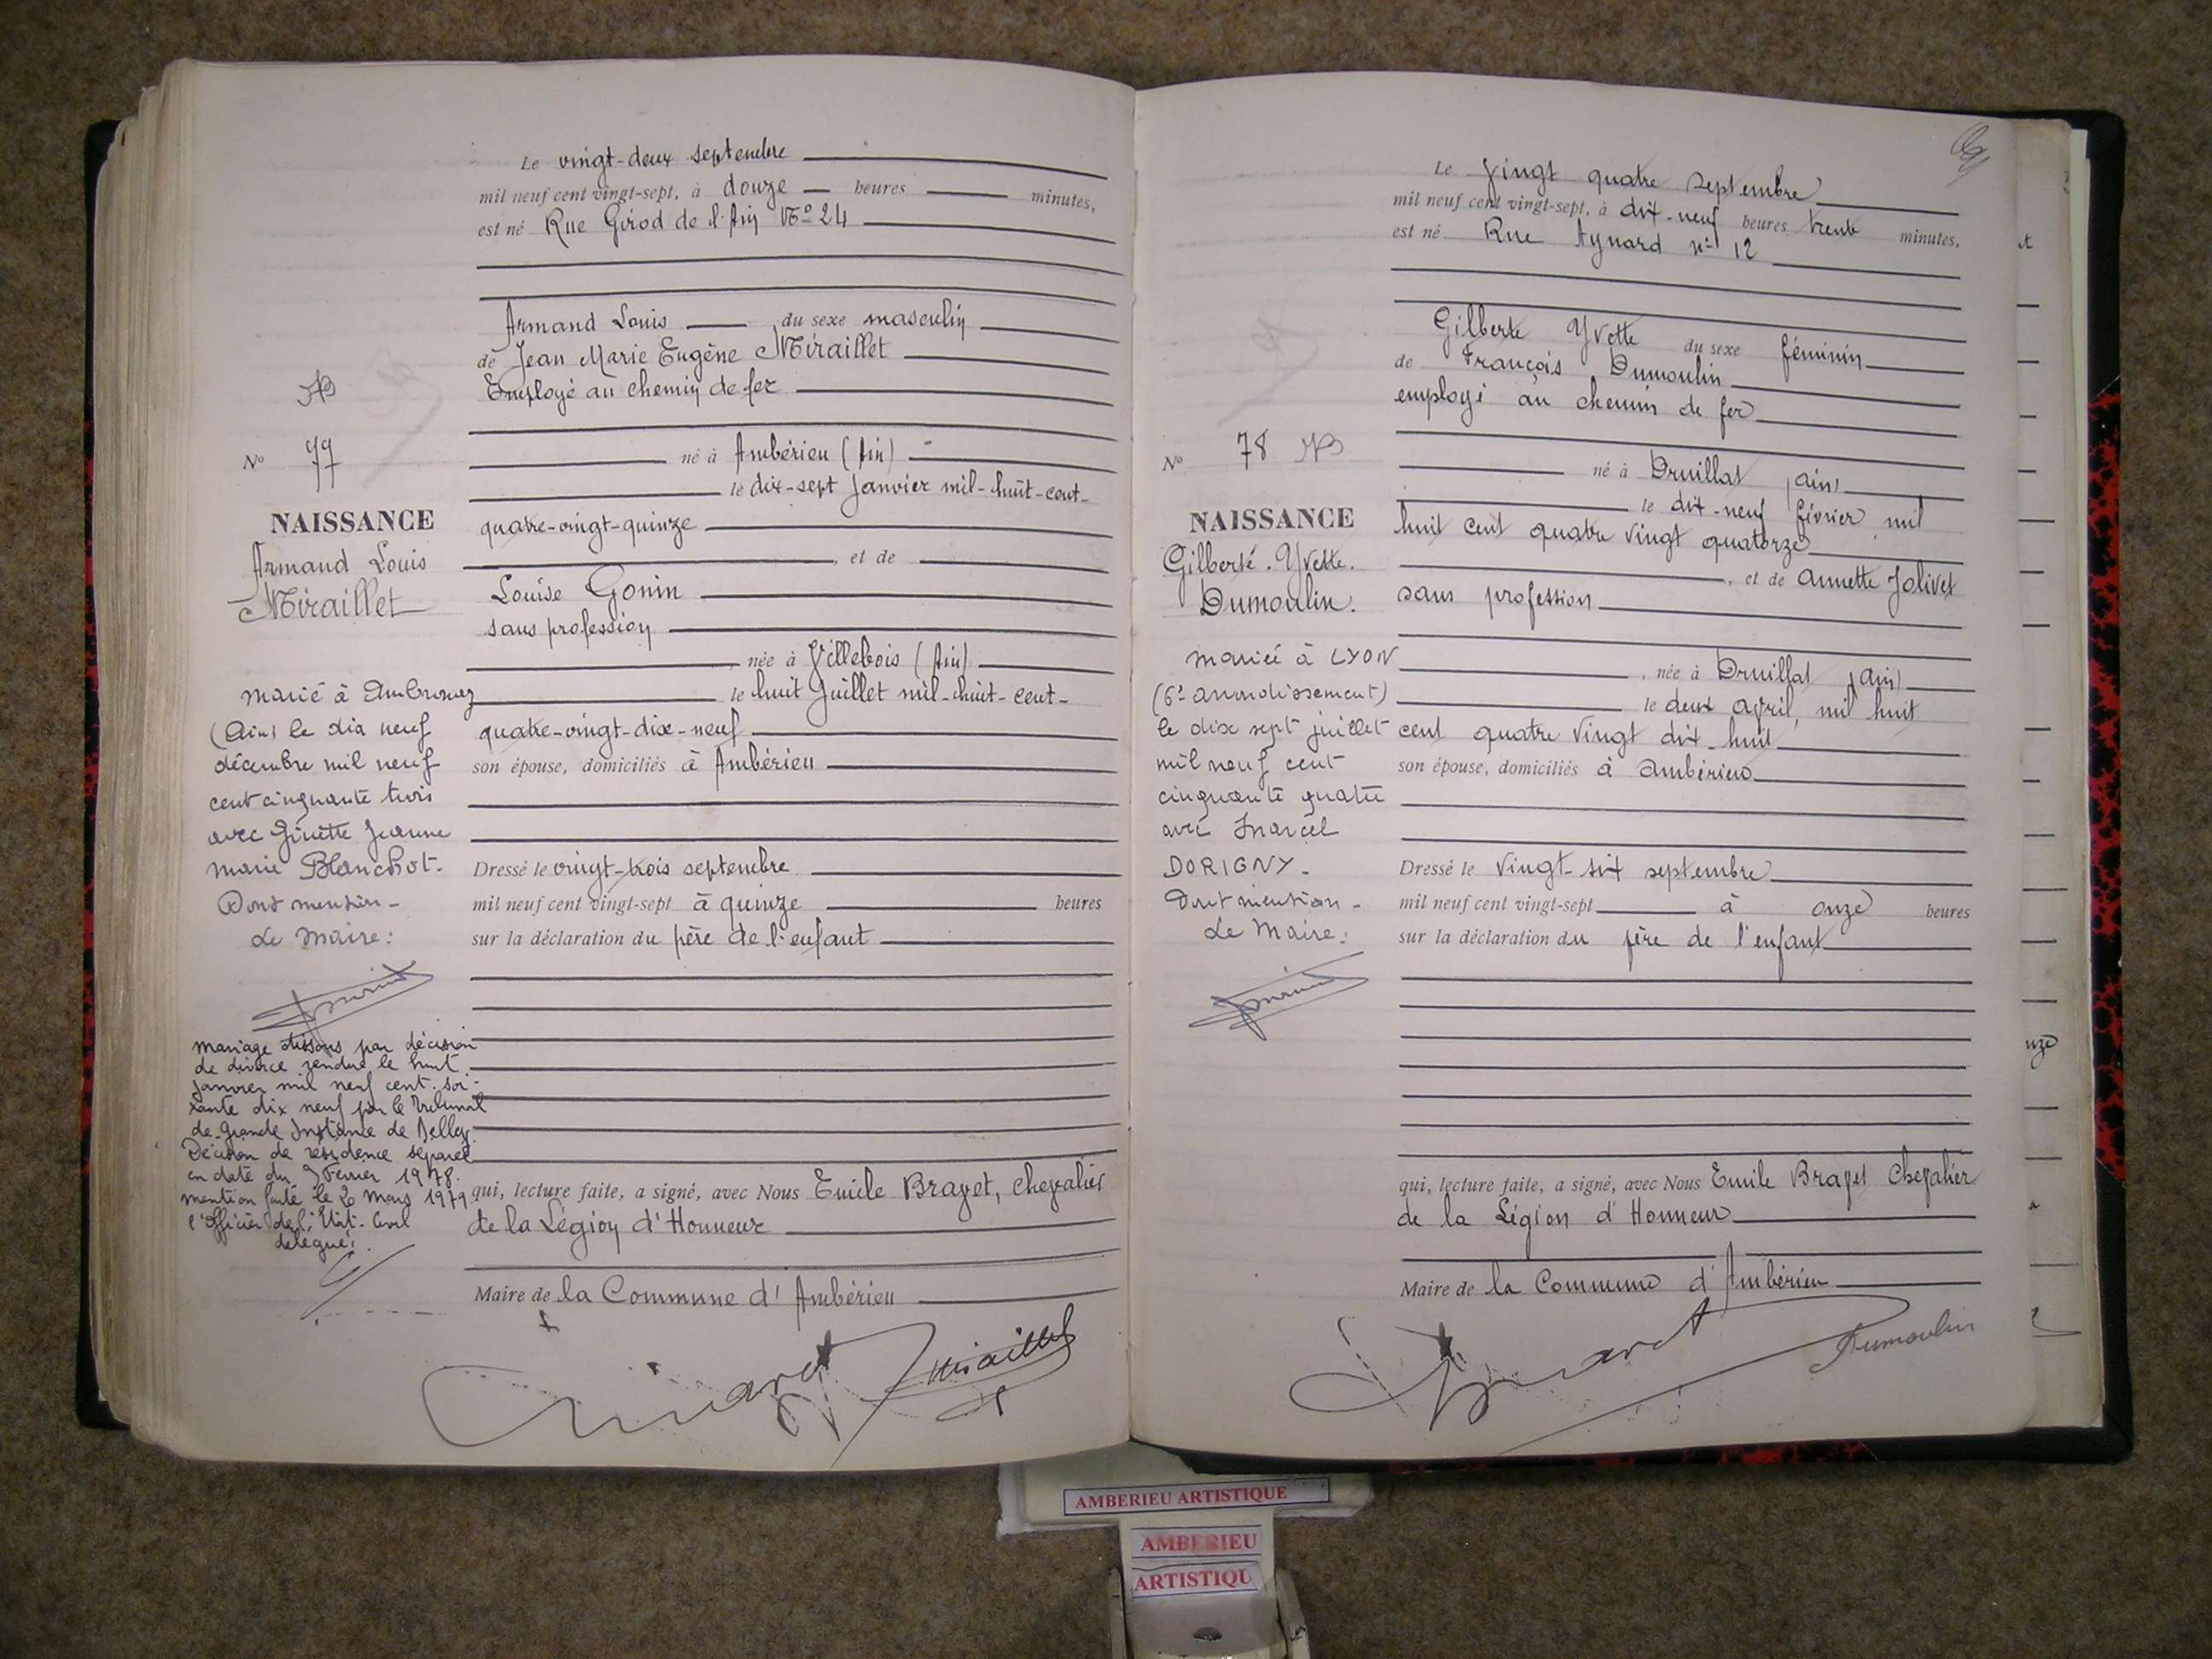 Le vingt-deux septembre
mil neuf cent vingt-sept, à douze heures minutes,
est né Rue Girod de l'Ain No 24
Armand Louis du sexe masculin
de Jean Marie Eugène Miraillet
Employé au chemin de fer
né à Ambérieu (Ain)
le dix-sept Janvier mil-huit-cent-
quatre-vingt-quinze
, et de
Louise Gonin
sans profession
née à Villebois (Ain)
le huit Juillet mil-huit-cent-
quatre-vingt-dix-neuf
son épouse, domiciliés à Ambérieu
Dressé le vingt-trois septembre
mil neuf cent vingt-sept à quinze heures
sur la déclaration du père de l'enfant
qui, lecture faite, a signé, avec Nous Emile Bravet, chevalier
de la Légion d'Honneur
Maire de la Commune d'Ambérieu
Miraillet
No 77
NAISSANCE
Armand Louis
Miraillet
marié à Ambronay
(Ain) le dix neuf
décembre mil neuf
cent cinquante trois
avec Ginette Jeanne
Marie Blanchot.
Dont mention -
Le Maire:
mariage dissous par décision
de divorce rendue le huit
janvier mil neuf cent soi-
xante dix neuf par le Tribunal
de Grande Instance de Belley.
Décision de résidence séparée
en date du 9 Février 1978.
mention faite le 20 Mars 1979
l'Officier de l'Etat-Civil
délégué:
Le Vingt quatre septembre
mil neuf cent vingt-sept, à dix-neuf heures trente minutes,
est né Rue Aynard no 12
Gilberte Yvette du sexe féminin
de François Dumoulin
employé au chemin de fer
né à Druillat (Ain)
le dix-neuf février mil
huit cent quatre vingt quatorze
, et de Annette Jolivet
sans profession
, née à Druillat (Ain)
le deux avril, mil huit
cent quatre vingt dix-huit
son épouse, domiciliés à Ambérieu
Dressé le vingt-six septembre
mil neuf cent vingt-sept à onze heures
sur la déclaration du père de l'enfant
qui, lecture faite, a signé, avec Nous Emile Bravet Chevalier
de la Légion d'Honneur
Maire de la Commune d'Ambérieu
Dumoulin
No 78
NAISSANCE
Gilberte. Yvette.
Dumoulin.
mariée à LYON
(6e arrondissement)
le dix sept juillet
mil neuf cent
cinquante quatre
avec Marcel
DORIGNY -
Dont mention -
Le Maire:
AMBERIEU ARTISTIQUE
AMBERIEU
ARTISTIQU